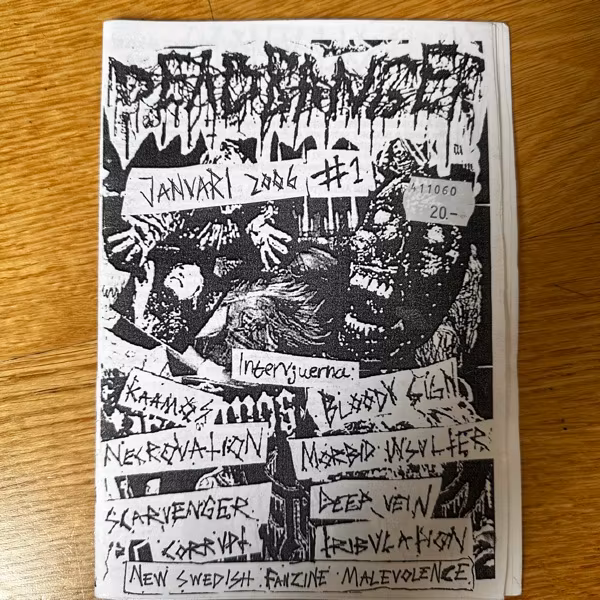 DEADBANGER
JANUARI 2006 #1
411060
20.-
Intervjuerna:
KAAMOS
BLOODY SIGN
NECROVATION
MORBID INSULTER
SCARVENGER
DEEP VEIN
CORRUPT
TRIBULATION
NEW SWEDISH FANZINE MALEVOLENCE